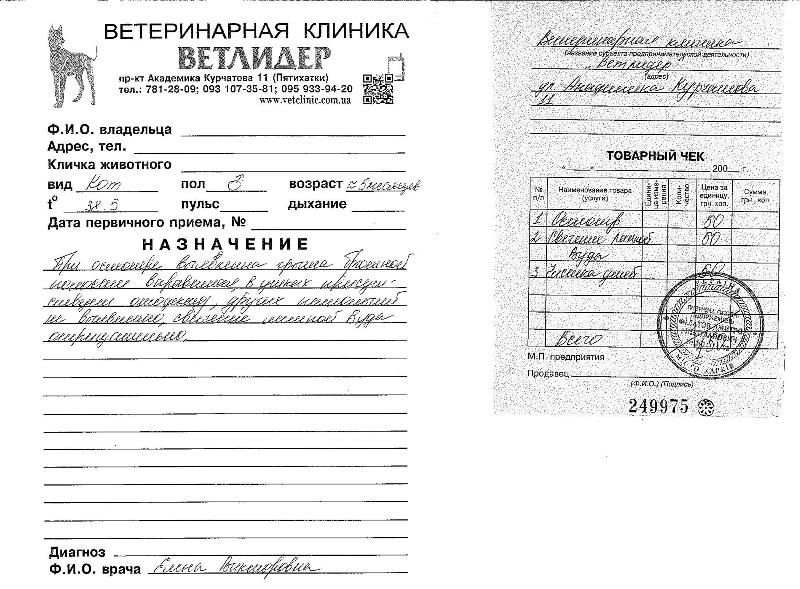 ВЕТЕРИНАРНАЯ КЛИНИКА
ВЕТЛИДЕР
пр-кт Академика Курчатова 11 (Пятихатки)
тел.: 781-28-09; 093 107-35-81; 095 933-94-20
www.vetclinic.com.ua
Ф.И.О. владельца
Адрес, тел.
Кличка животного
вид Кот пол возраст ≈ 5 месяцев
t° 38.5 пульс дыхание
Дата первичного приема, №
НАЗНАЧЕНИЕ
При осмотре выявлена
в ушках
других патологий
не выявлено, свечение лампой Вуда
отрицательно.
Диагноз
Ф.И.О. врача Елена Викторовна
Ветеринарная клиника
(название субъекта предпринимательской деятельности)
Ветлидер
(адрес)
ул. Академика Курчатова
11
ТОВАРНЫЙ ЧЕК
" " 200 г.
№ п/п Наименование товара (услуги) Единица измерения Количество Цена за единицу, грн. коп. Сумма, грн., коп
1 Осмотр 50
2 Свечение лампой 50
Вуда
3 Чистка ушей 50
Всего
М.П. предприятия
Продавец
(Ф.И.О.) (Подпись)
249975